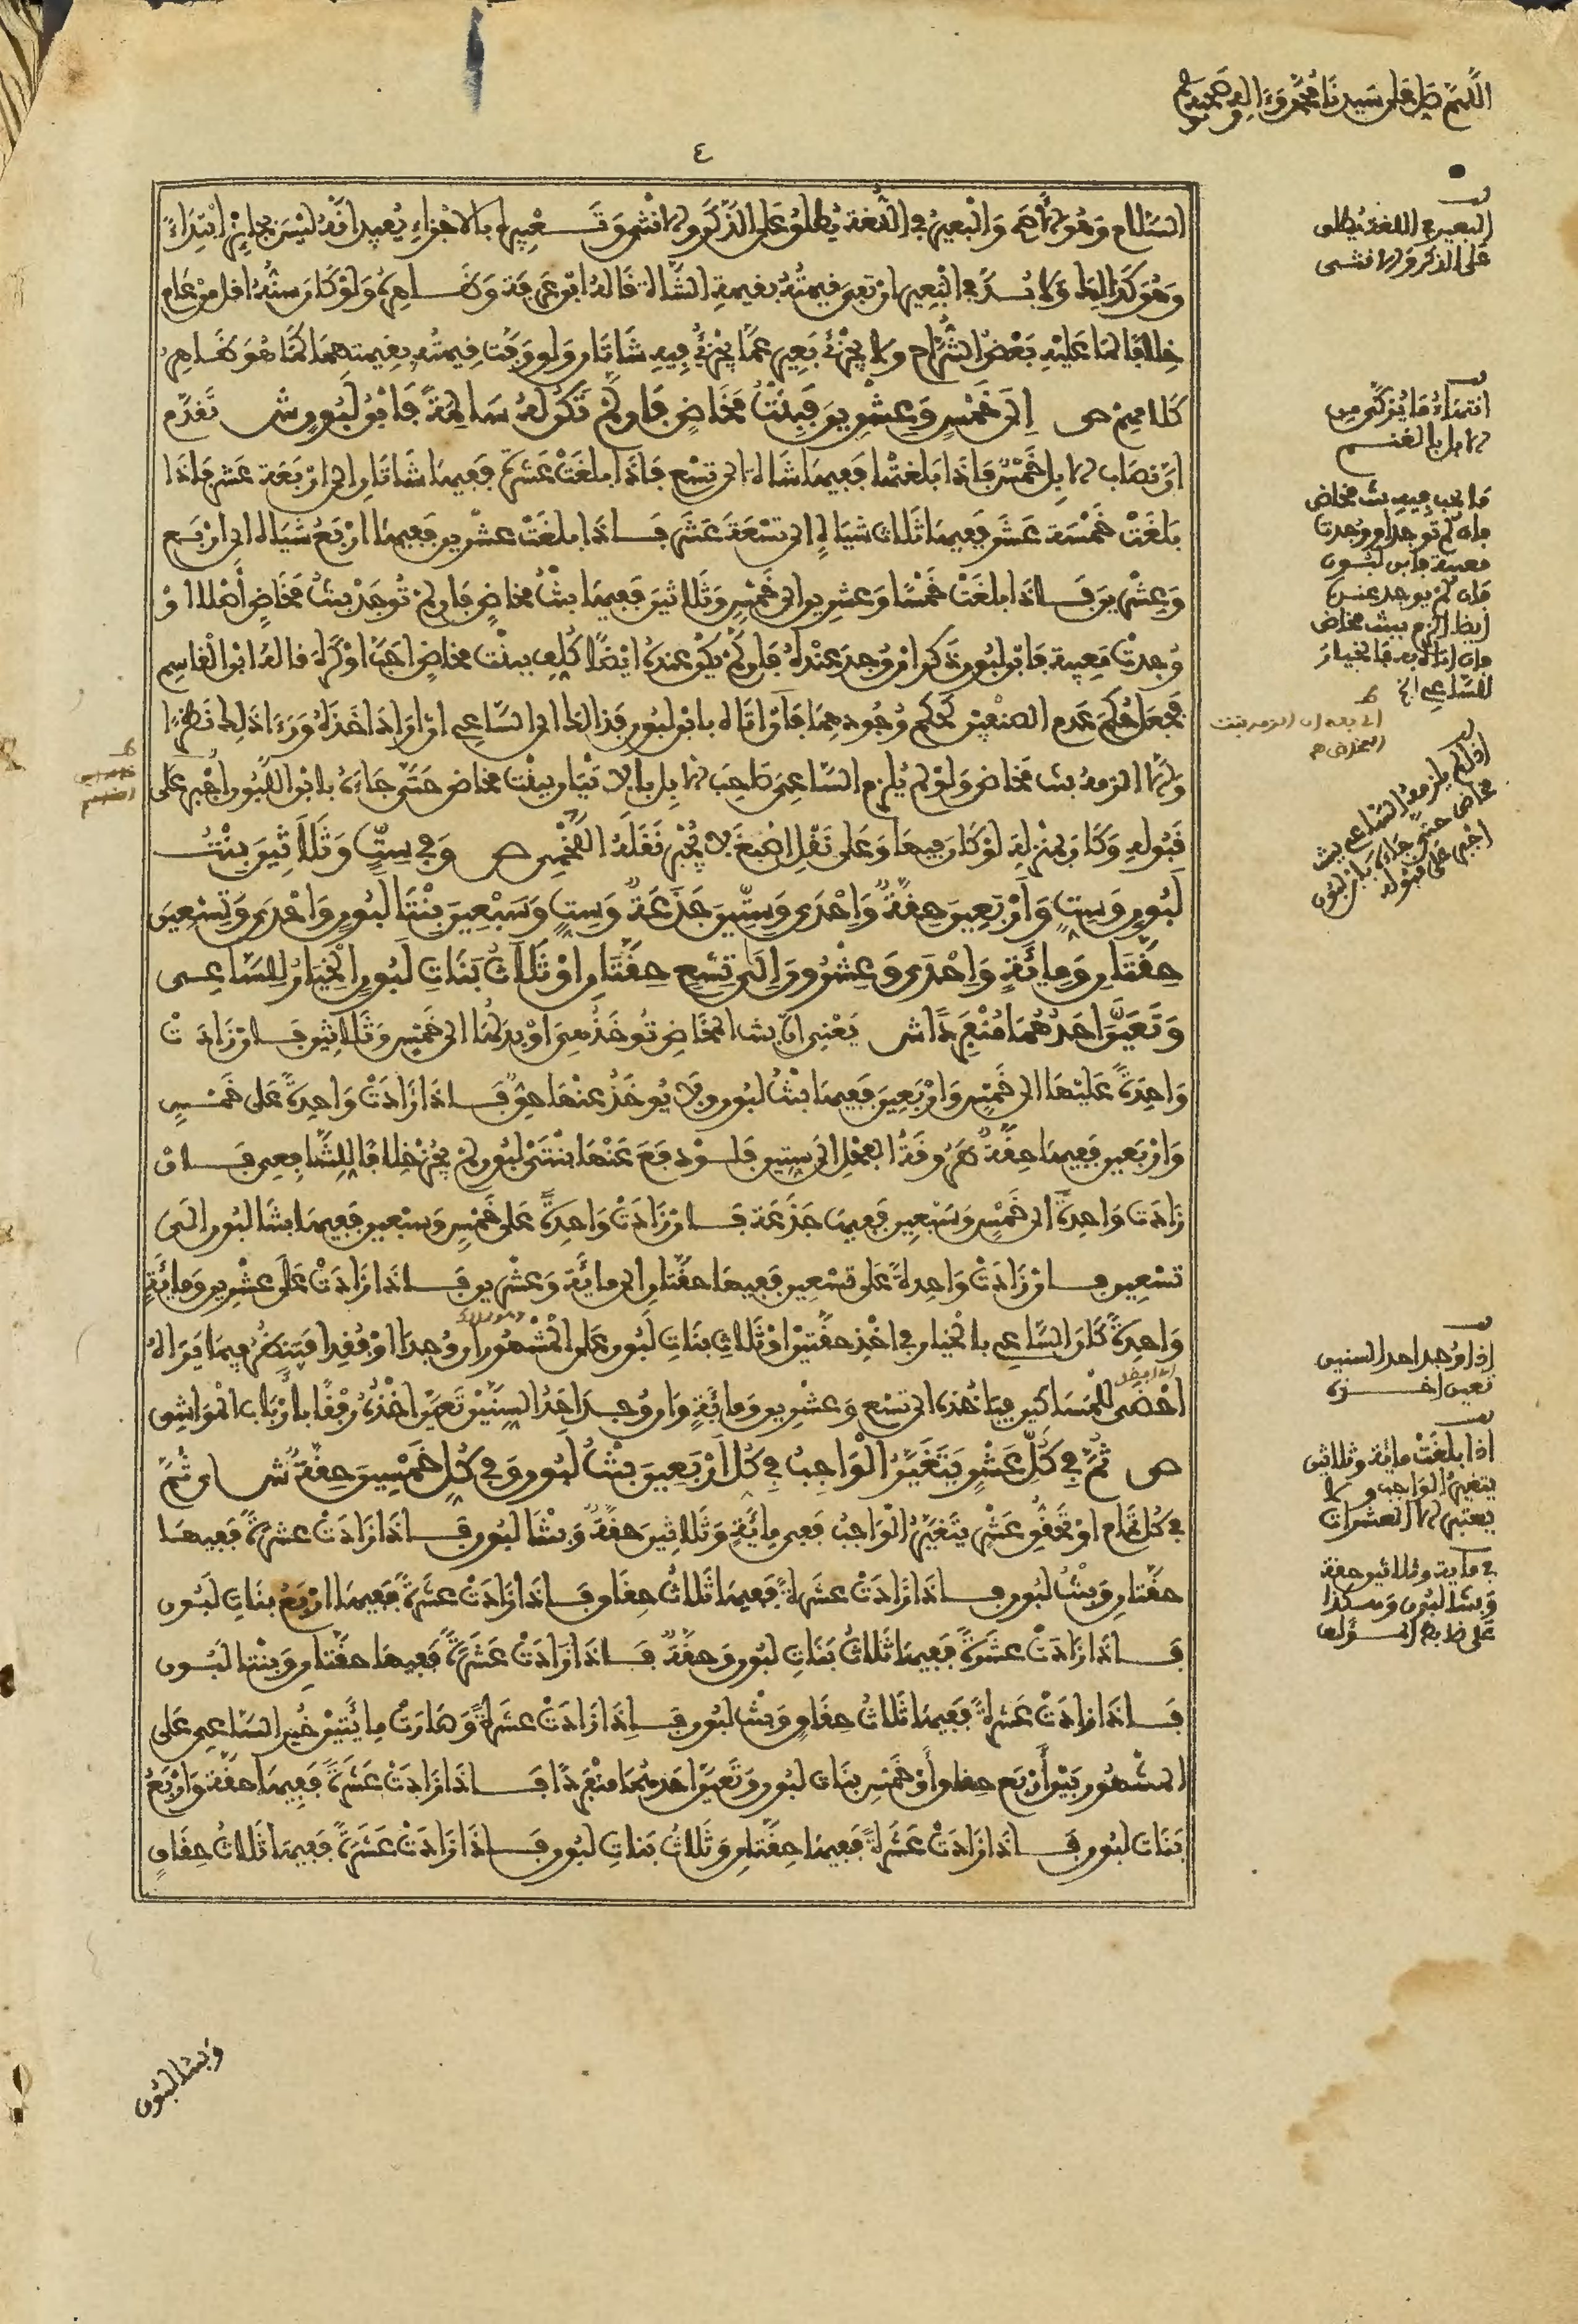 اللهم صل على سيدنا محمد وءاله وصحبه
٤
السلام وهو الأصح والبعير في اللغة يطلق على الذكر والأنثى وتعبيره بالاجزاء يفيد انه ليس بجائز ابتداء
وهو كذالك ولا بد في البعير ان تفي قيمته بقيمة الشاة قاله ابن عرفة وظاهره ولو كان سنه اقل من عام
خلافا لما عليه بعض الشراح ولا يجزئ بعير عما يجزئ فيه شاتان ولو وفت قيمته بقيمتهما كما هو ظاهر
كلامهم ص الى خمس وعشرين فبنت مخاض فان لم تكن له سالمة فابن لبون ش تقدم
ان نصاب الابل خمس فاذا بلغتها ففيها شاة الى تسع فاذا بلغت عشرة ففيها شاتان الى اربعة عشر فاذا
بلغت خمسة عشر ففيها ثلاث شياه الى تسعة عشر فاذا بلغت عشرين ففيها اربع شياه الى اربع
وعشرين فاذا بلغت خمسا وعشرين الى خمس وثلاثين ففيها بنت مخاض فان لم توجد بنت مخاض أصلا او
وجدت معيبة فابن لبون ذكر ان وجد عنده فان لم يكن عنده ايضا كلف ببنت مخاض احب او كره قاله ابن القاسم
فجعل حكم عدم الصنفين كحكم وجودهما فان أتاه بابن لبون فذالك الى الساعي ان اراد اخذه ورءا ذلك نظرا
والا الزمه بنت مخاض ولو لم يلزم الساعي صاحب الابل بالاتيان ببنت مخاض حتى جاءه بابن اللبون اجبر على
قبوله وكان بمنزلة لو كان فيها وعلى نقل اصبغ لا يجبر نقله اللخمي ص وفي ست وثلاثين بنت
لبون وست وأربعين حقة وإحدى وستين جذعة وست وسبعين بنتا لبون وإحدى وتسعين
حقتان ومائة وإحدى وعشرون إلى تسع حقتان او ثلاث بنات لبون الخيار للساعي
وتعين احدهما منفردا ش يعني ان بنت المخاض تؤخذ هي او بدلها الى خمس وثلاثين فان زادت
واحدة عليها الى خمس وأربعين ففيها بنت لبون ولا يؤخذ عنها حق فاذا زادت واحدة على خمس
وأربعين ففيها حقة طروقة الفحل الى ستين فلو دفع عنها بنتي لبون لم يجز خلافا للشافعي فان
زادت واحدة الى خمس وسبعين ففيها جذعة فان زادت واحدة على خمس وسبعين ففيها بنتا لبون الى
تسعين فان زادت واحدة على تسعين ففيها حقتان الى مائة وعشرين فاذا زادت على عشرين ومائة
واحدة كان الساعي بالخيار في اخذ حقتين او ثلاث بنات لبون على المشهور ان وجدا او فقدا فينظر فيما يراه
احظى للمساكين فيأخذه الى تسع وعشرين ومائة وان وجد احد السنين تعين اخذه رفقا بأرباب المواشي
ص ثم في كل عشر يتغير الواجب في كل أربعين بنت لبون وفي كل خمسين حقة ش اى ثم
في كل تمام او تحقق عشر يتغير الواجب ففي مائة وثلاثين حقة وبنتا لبون فاذا زادت عشرة ففيها
حقتان وبنت لبون فاذا زادت عشرة ففيها ثلاث حقاق فاذا زادت عشرة ففيها اربع بنات لبون
فاذا زادت عشرة ففيها ثلاث بنات لبون وحقة فاذا زادت عشرة ففيها حقتان وبنتا لبون
فاذا زادت عشرة ففيها ثلاث حقاق وبنت لبون فاذا زادت عشرة وصارت مائتين خير الساعي على
المشهور بين أربع حقاق أو خمس بنات لبون وتعين احدهما منفردا فاذا زادت عشرة ففيها حقة واربع
بنات لبون فاذا زادت عشرة ففيها حقتان وثلاث بنات لبون فاذا زادت عشرة ففيها ثلاث حقاق
وبنتا لبون
البعير في اللغة يطلق
على الذكر والانثى
انتهاء ما يزكى من
الابل بالغنم
ما يجب فيه بنت مخاض
فإن لم توجد او وجدت
معيبة فابن لبون
فإن لم يوجد عنده
ايضا الزم ببنت مخاض
فإن اتاه به فالخيار
للساعي الخ
اذا لم يلزمه الساعي بنت
مخاض حتى جاءه بابن لبون
اجبر على قبوله
إذا وجد احد السنين
تعين اخذه
اذا بلغت مائة وثلاثين
يتغير الواجب ولا
يعتبر الا العشرات
في مائة وثلاثين حقة
وبنتا لبون وهكذا